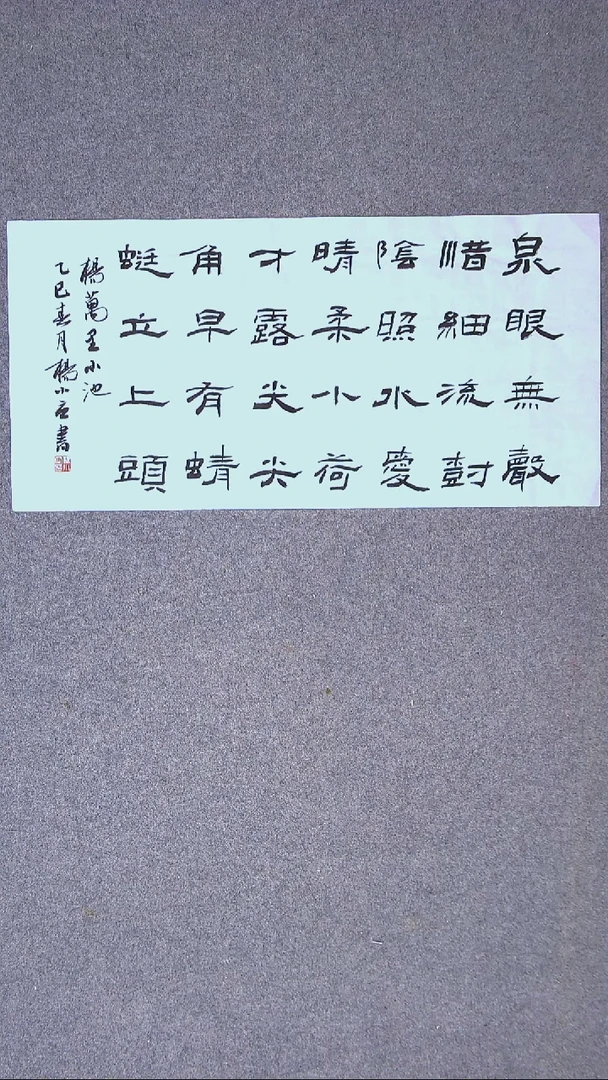 泉眼無聲
惜細流尌
陰照水愛
晴柔小荷
才露尖尖
角早有蜻
蜓立上頭
楊萬里小池
乙巳春月楊小書